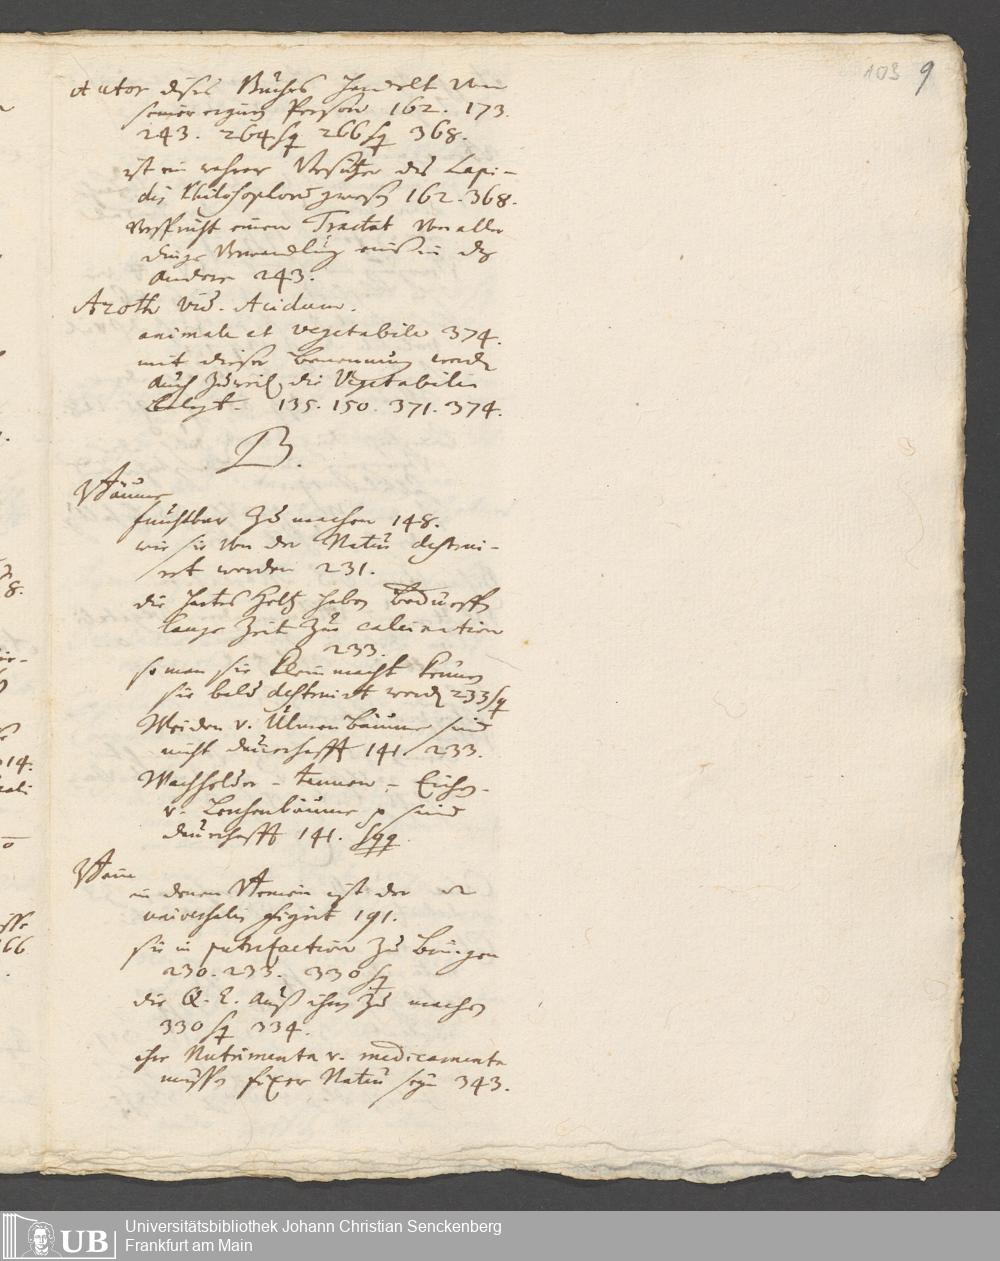 103 9
Autor dises Buches handelt von
seiner eigner Person 162. 173.
243. 264 sq 266 sq 368.
ist ein wahrer Besitzer des Lapi-
dis Philosophorum gewest 162. 368.
verspricht einen Tractat von aller
dinge Verwandlung eins in das
andere 243.
Azoth vid. Acidum.
animale et vegetabile 374.
mit diser benennung werden
auch zuweilen die Vegetabilia
belegt. 135. 150. 371. 374.
B.
Bäume
fruchtbar zu machen 148.
wie sie von der Natur destrui-
ert werden 231.
die hartes Holtz haben bedürffen
lange Zeit zur calcination
233.
so man sie klein macht können
sie bald destruirt werden 233 sq
Weiden v. Ulmenbäume sind
nicht daurhafft 141. 233.
Wachholder - tannen - Eichen -
v. Lerchenbäume p sind
daurhafft 141. sqq.
in denen ist der
universalis figirt 191.
sie in putrefaction zu bringen
230. 233. 330 sq
die Q. E. auß ihnen zu machen
330 sq 334.
ihre Nutrimenta v. medicamenta
müssen fixer Natur seyn 343.
UB
Universitätsbibliothek Johann Christian Senckenberg
Frankfurt am Main